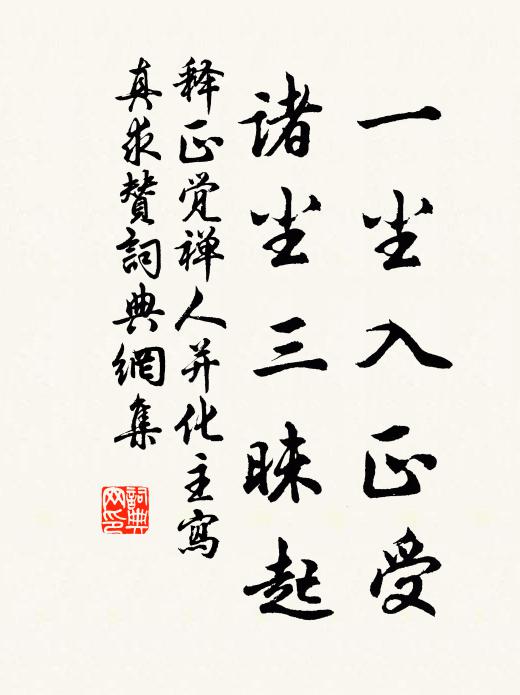 一尘入正受
诸尘三昧起
释正觉禅人并化主寫
真求赞詞典網集
詞典
网印